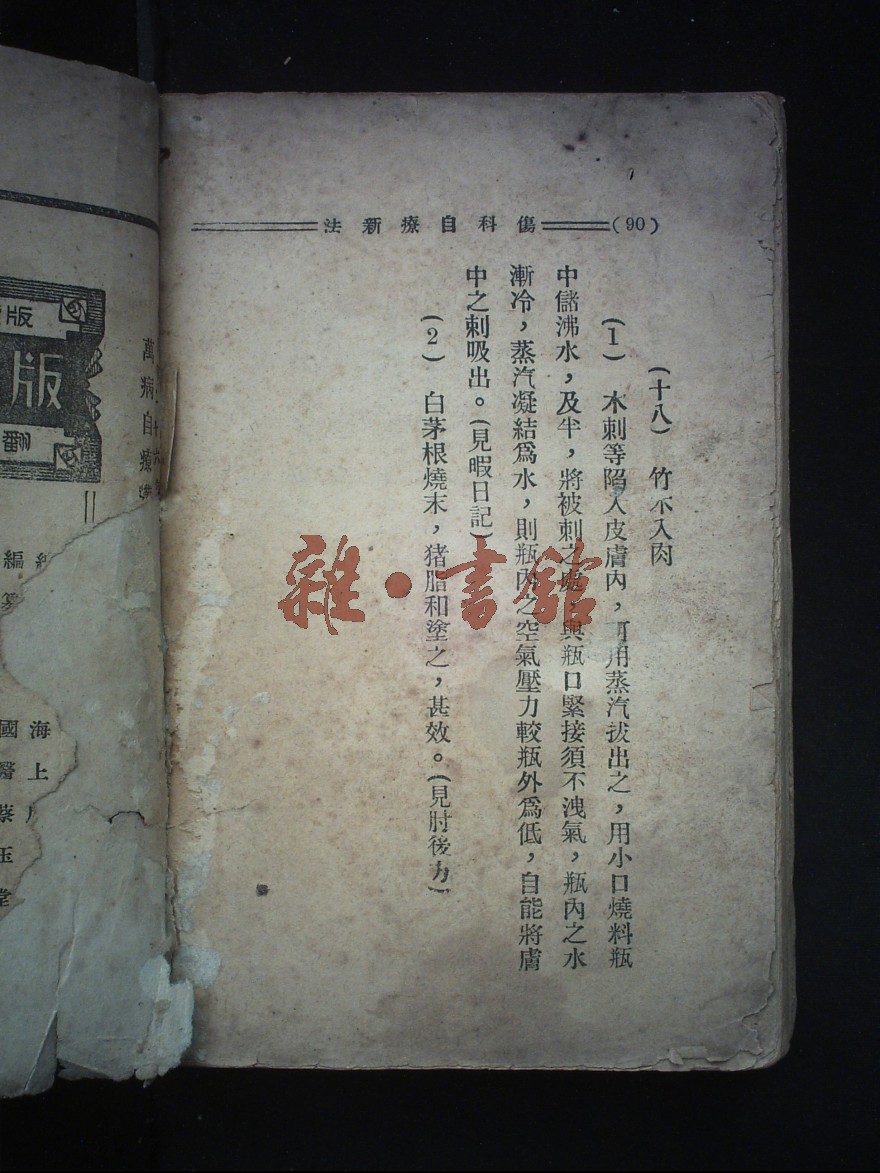 (90) 傷科自療新法
(十八) 竹木入肉
(1) 木刺等陷入皮膚內,可用蒸汽拔出之,用小口燒料瓶
中儲沸水,及半,將被刺之處,與瓶口緊接須不洩氣,瓶內之水
漸冷,蒸汽凝結爲水,則瓶內之空氣壓力較瓶外爲低,自能將膚
中之刺吸出。(見暇日記)
(2) 白茅根燒末,猪脂和塗之,甚效。(見肘後方)
雜·書館
萬病自療
版
版
翻
編
海上
國醫蔡玉堂